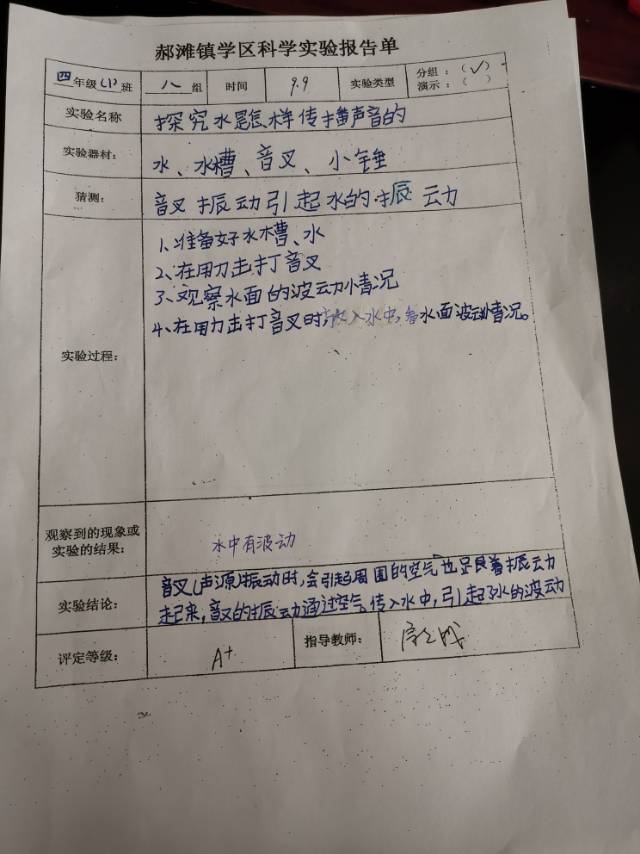 郝滩镇学区科学实验报告单
四年级(1)班 八组 时间 9.9 实验类型 分组:(✓) 演示:( )
实验名称 探究水是怎样传播声音的
实验器材: 水、水槽、音叉、小锤
猜测: 音叉振动引起水的振动
实验过程:
1、准备好水槽、水
2、在用力击打音叉
3、观察水面的波动情况
4、在用力击打音叉时,放入水中,看水面波动情况。
观察到的现象或实验的结果: 水中有波动
实验结论: 音叉(声源)振动时,会引起周围的空气也跟着振动
起来,音叉的振动通过空气传入水中,引起水的波动
评定等级: A+ 指导教师: